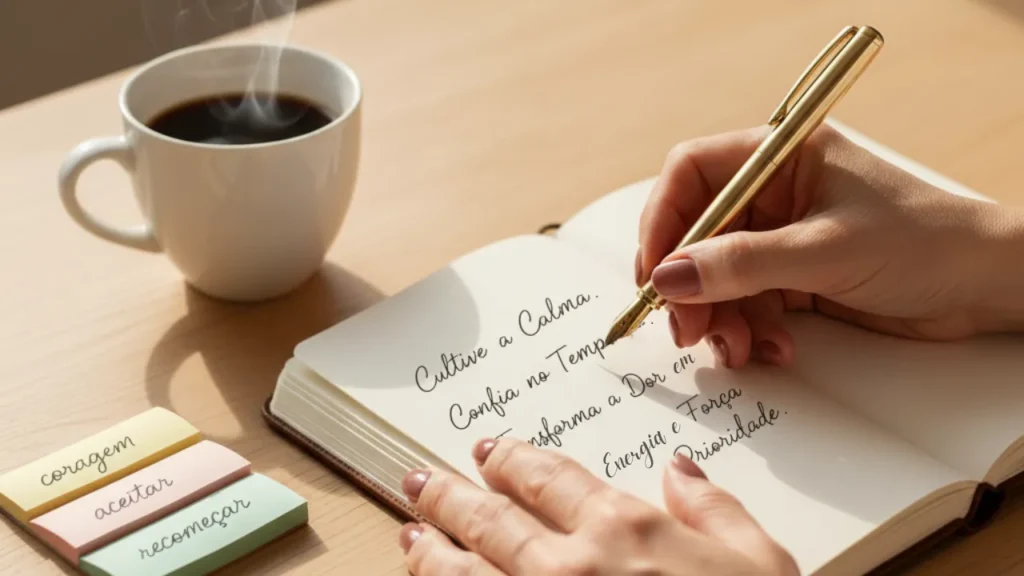 Cultive a Calma.
Confia no Temp
nsforma a Dor em
Energia e Força
Prioridade.
coragem
aceitar
recomeçar